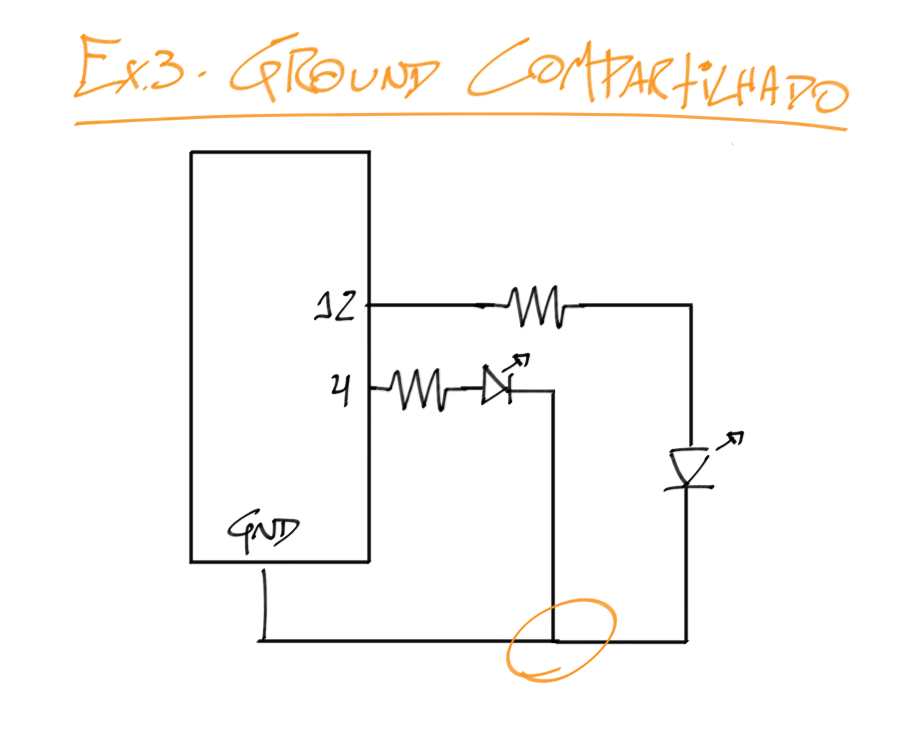 Ex.3. GROUND COMPARTiLHADO
12
4
GND